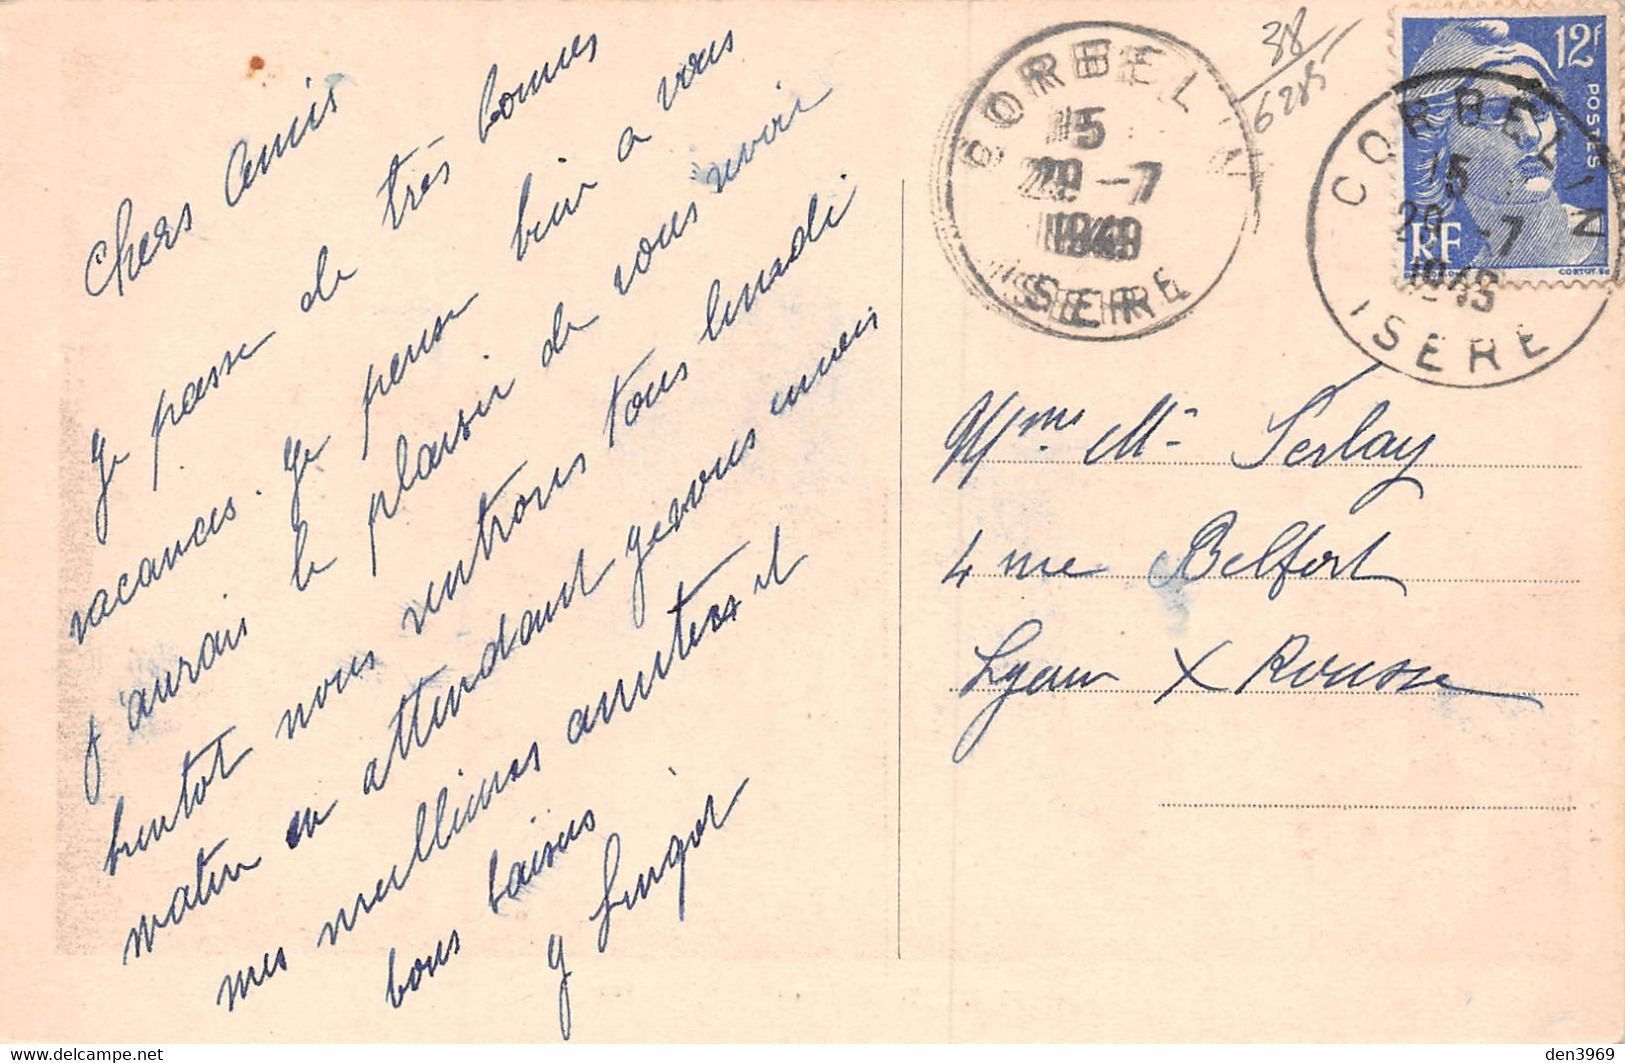 Chers Amis
Je passe de très bonnes
vacances. Je pense bien a vous
j aurais le plaisir de vous revoir
bientot nous rentrons tous lundi
matin en attendant je vous
mes meilleures amitiés et
bons baisers
Mme M. Serlay
4 rue Belfort
Lyon X Rousse
38
6285
CORBELIN
15
29 -7
1949
ISERE
CORBELIN
15
29 -7
1949
ISERE
12F
POSTES
RF
CORTOT. SC
den3969